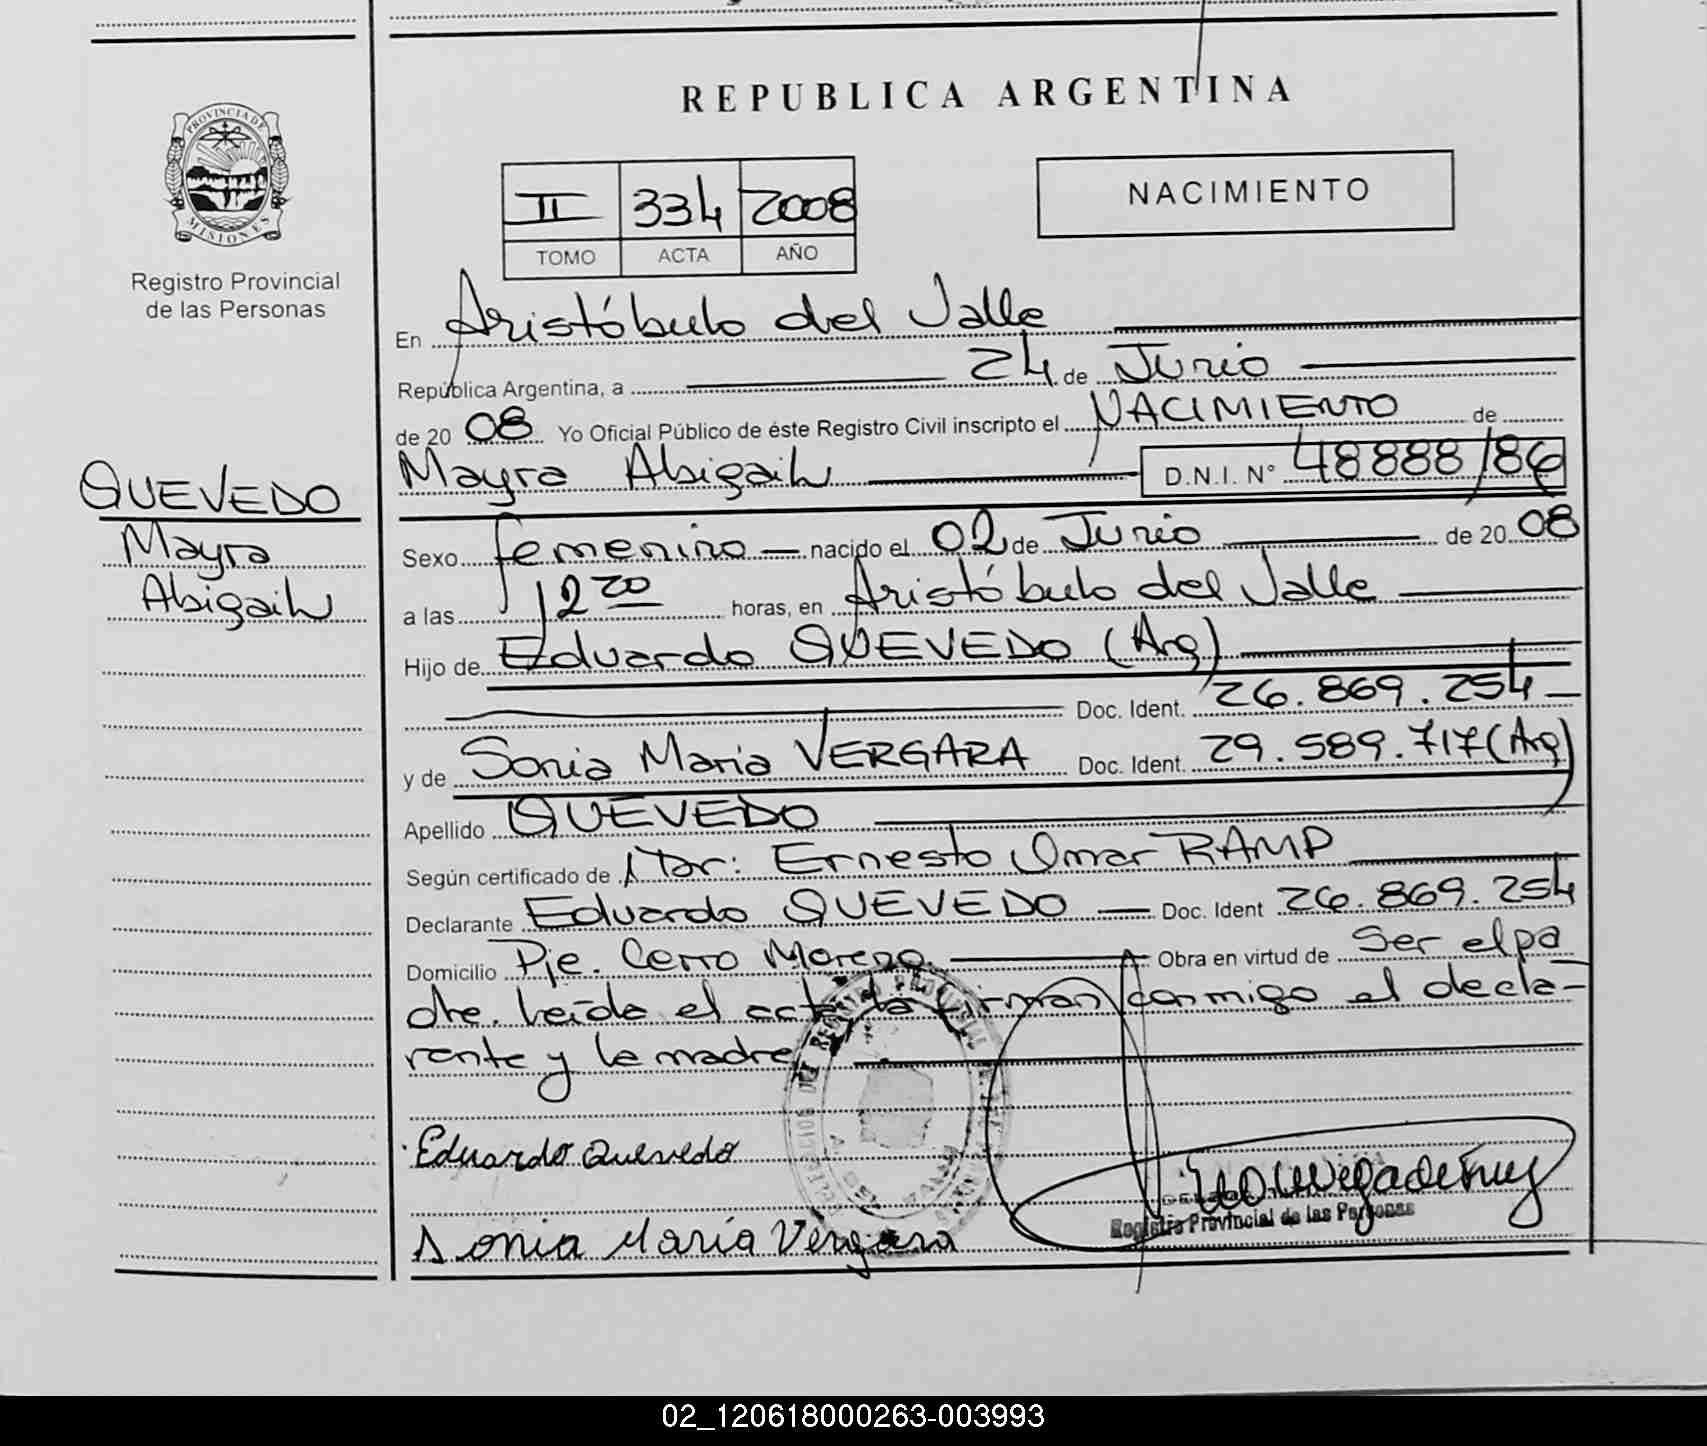 REPUBLICA ARGENTINA
PROVINCIA DE
MISIONES
Registro Provincial
de las Personas
II 334 2008
TOMO ACTA AÑO
NACIMIENTO
En Aristóbulo del Valle
República Argentina, a 24 de Junio
de 20 08 Yo Oficial Público de éste Registro Civil inscripto el NACIMIENTO de
Mayra Abigail D.N.I. N° 48888186
QUEVEDO
Mayra
Abigail
Sexo femenino nacido el 02 de Junio de 20 08
a las 12 20 horas, en Aristóbulo del Valle
Hijo de Eduardo QUEVEDO (Arg)
Doc. Ident. 26.869.254
y de Sonia Maria VERGARA Doc. Ident. 29.589.717 (Arg)
Apellido QUEVEDO
Según certificado de Dr: Ernesto Omar RAMP
Declarante Eduardo QUEVEDO Doc. Ident 26.869.254
Domicilio Pje. Cerro Moreno Obra en virtud de ser el pa
dre. Leída el acta la firman conmigo el decla-
rante y la madre
Eduardo Quevedo
Sonia María Vergara
Registro Provincial de las Personas
02_120618000263-003993